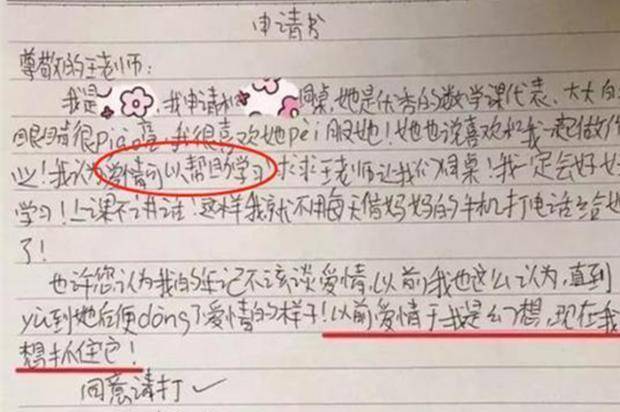 申请书
尊敬的王老师:
我是 ,我申请和 同桌,她是优秀的数学课代表、大大的
眼睛很piào亮,我很喜欢她pèi服她!她也说喜欢和我一起做作
业!我认为爱情可以帮助学习求求王老师让我们同桌!我一定会好好
学习!上课不讲话!这样我就不用每天借妈妈的手机打电话给她
了!
也许您认为我的年记不该谈爱情,以前我也这么认为,直到
yù到她后便dǒng了爱情的样子!以前爱情于我是幻想,现在我
想抓住它!
同意请打✓